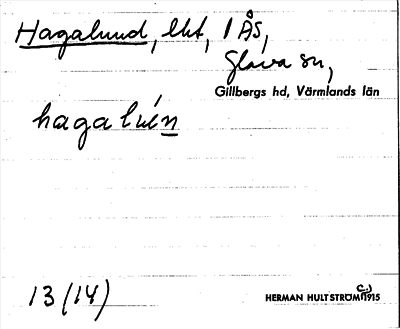 Hagalund, lht, 1 Ås,
Glava sn,
Gillbergs hd, Värmlands län
hagalúen
13 (14)
HERMAN HULTSTRÖM (C.) 1915